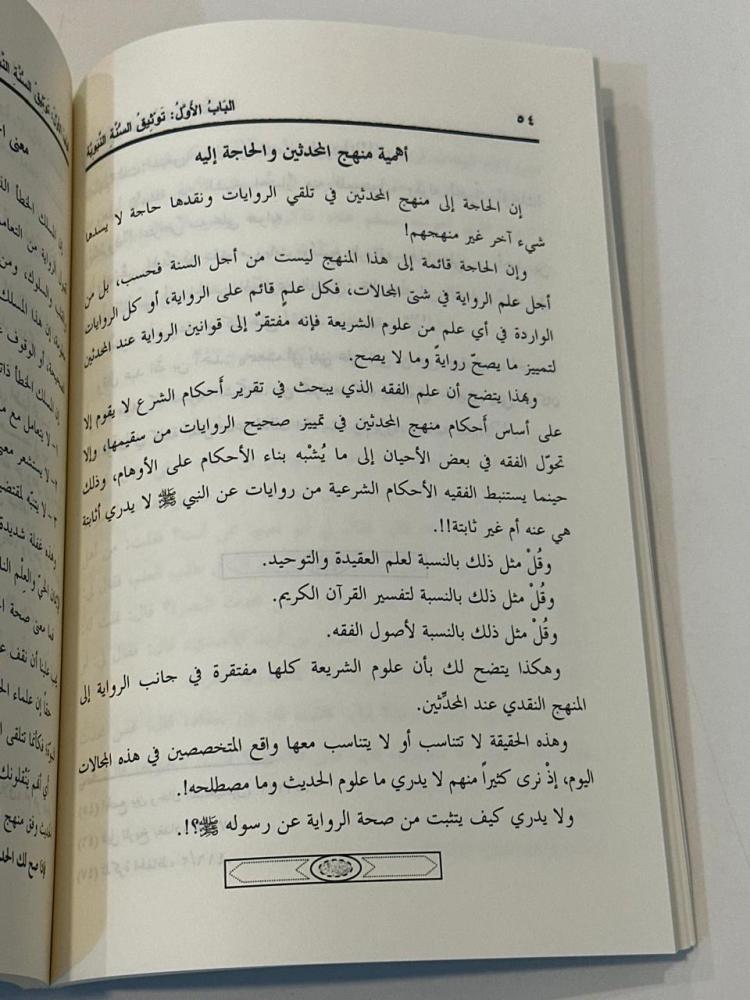 ٥٤
البَابُ الأوَّلُ: تَوْثِيقُ السُّنَّةِ النَّبَوِيَّة
أهمية منهج المحدثين والحاجة إليه
إن الحاجة إلى منهج المحدثين في تلقي الروايات ونقدها حاجة لا يسدها
شيء آخر غير منهجهم!
وإن الحاجة قائمة إلى هذا المنهج ليست من أجل السنة فحسب، بل من
أجل علم الرواية في شتى المجالات، فكل علمٍ قائم على الرواية، أو كل الروايات
الواردة في أي علم من علوم الشريعة فإنه مفتقرٌ إلى قوانين الرواية عند المحدثين
لتمييز ما يصحّ روايةً وما لا يصح.
وبهذا يتضح أن علم الفقه الذي يبحث في تقرير أحكام الشرع لا يقوم إلا
على أساس أَحكام منهج المحدثين في تمييز صحيح الروايات من سقيمها، وإلا
تحوّل الفقه في بعض الأحيان إلى ما يُشْبه بناء الأحكام على الأوهام، وذلك
حينما يستنبط الفقيه الأحكام الشرعية من روايات عن النبي ﷺ لا يدري أثابتة
هي عنه أم غير ثابتة!!.
وقُلْ مثل ذلك بالنسبة لعلم العقيدة والتوحيد.
وقُلْ مثل ذلك بالنسبة لتفسير القرآن الكريم.
وقُلْ مثل ذلك بالنسبة لأصول الفقه.
وهكذا يتضح لك بأن علوم الشريعة كلها مفتقرة في جانب الرواية إلى
المنهج النقدي عند المحدِّثين.
وهذه الحقيقة لا تتناسب أو لا يتناسب معها واقع المتخصصين في هذه المجالات
اليوم، إذْ نرى كثيراً منهم لا يدري ما علوم الحديث وما مصطلحه!.
ولا يدري كيف يتثبت من صحة الرواية عن رسوله ﷺ؟!.